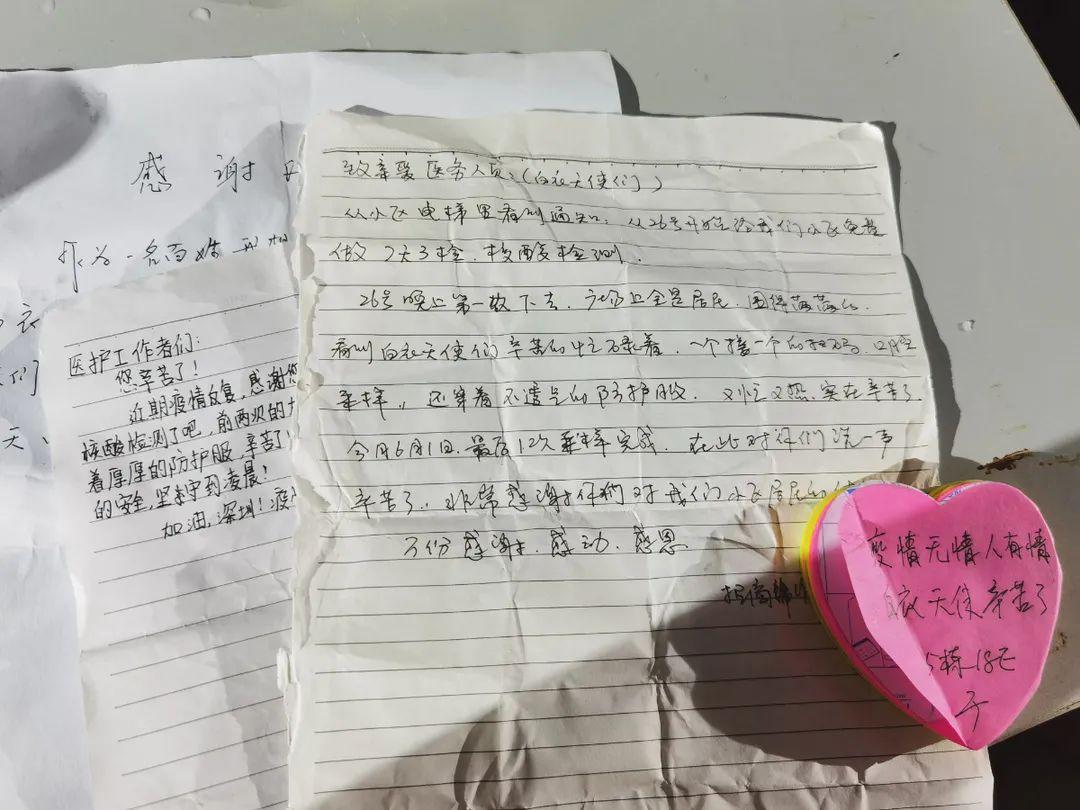 感 谢
作为一名百姓
医护工作者们:
您辛苦了!
近期疫情反复,感谢您
核酸检测了吧,前两次的
着厚厚的防护服,辛苦了!
的安全,坚守到凌晨!
加油,深圳!疫
致亲爱医务人员:(白衣天使们)
从小区电梯里看到通知:从26号开始给我们小区免费
做7天3检.核酸检测.
26号晚上第一次下去.广场上全是居民.围得满满的.
看到白衣天使们辛苦的忙碌着.一个接一个的扫码.口腔
采样,还穿着不透气的防护服.又忙又热.实在辛苦了.
今月6月1日.最后1次采样完成.在此对你们说一声
辛苦了.非常感谢你们对我们小区居民的
万份感谢.感动.感恩
招商锦
疫情无情人有情
白衣天使辛苦了
5栋18E